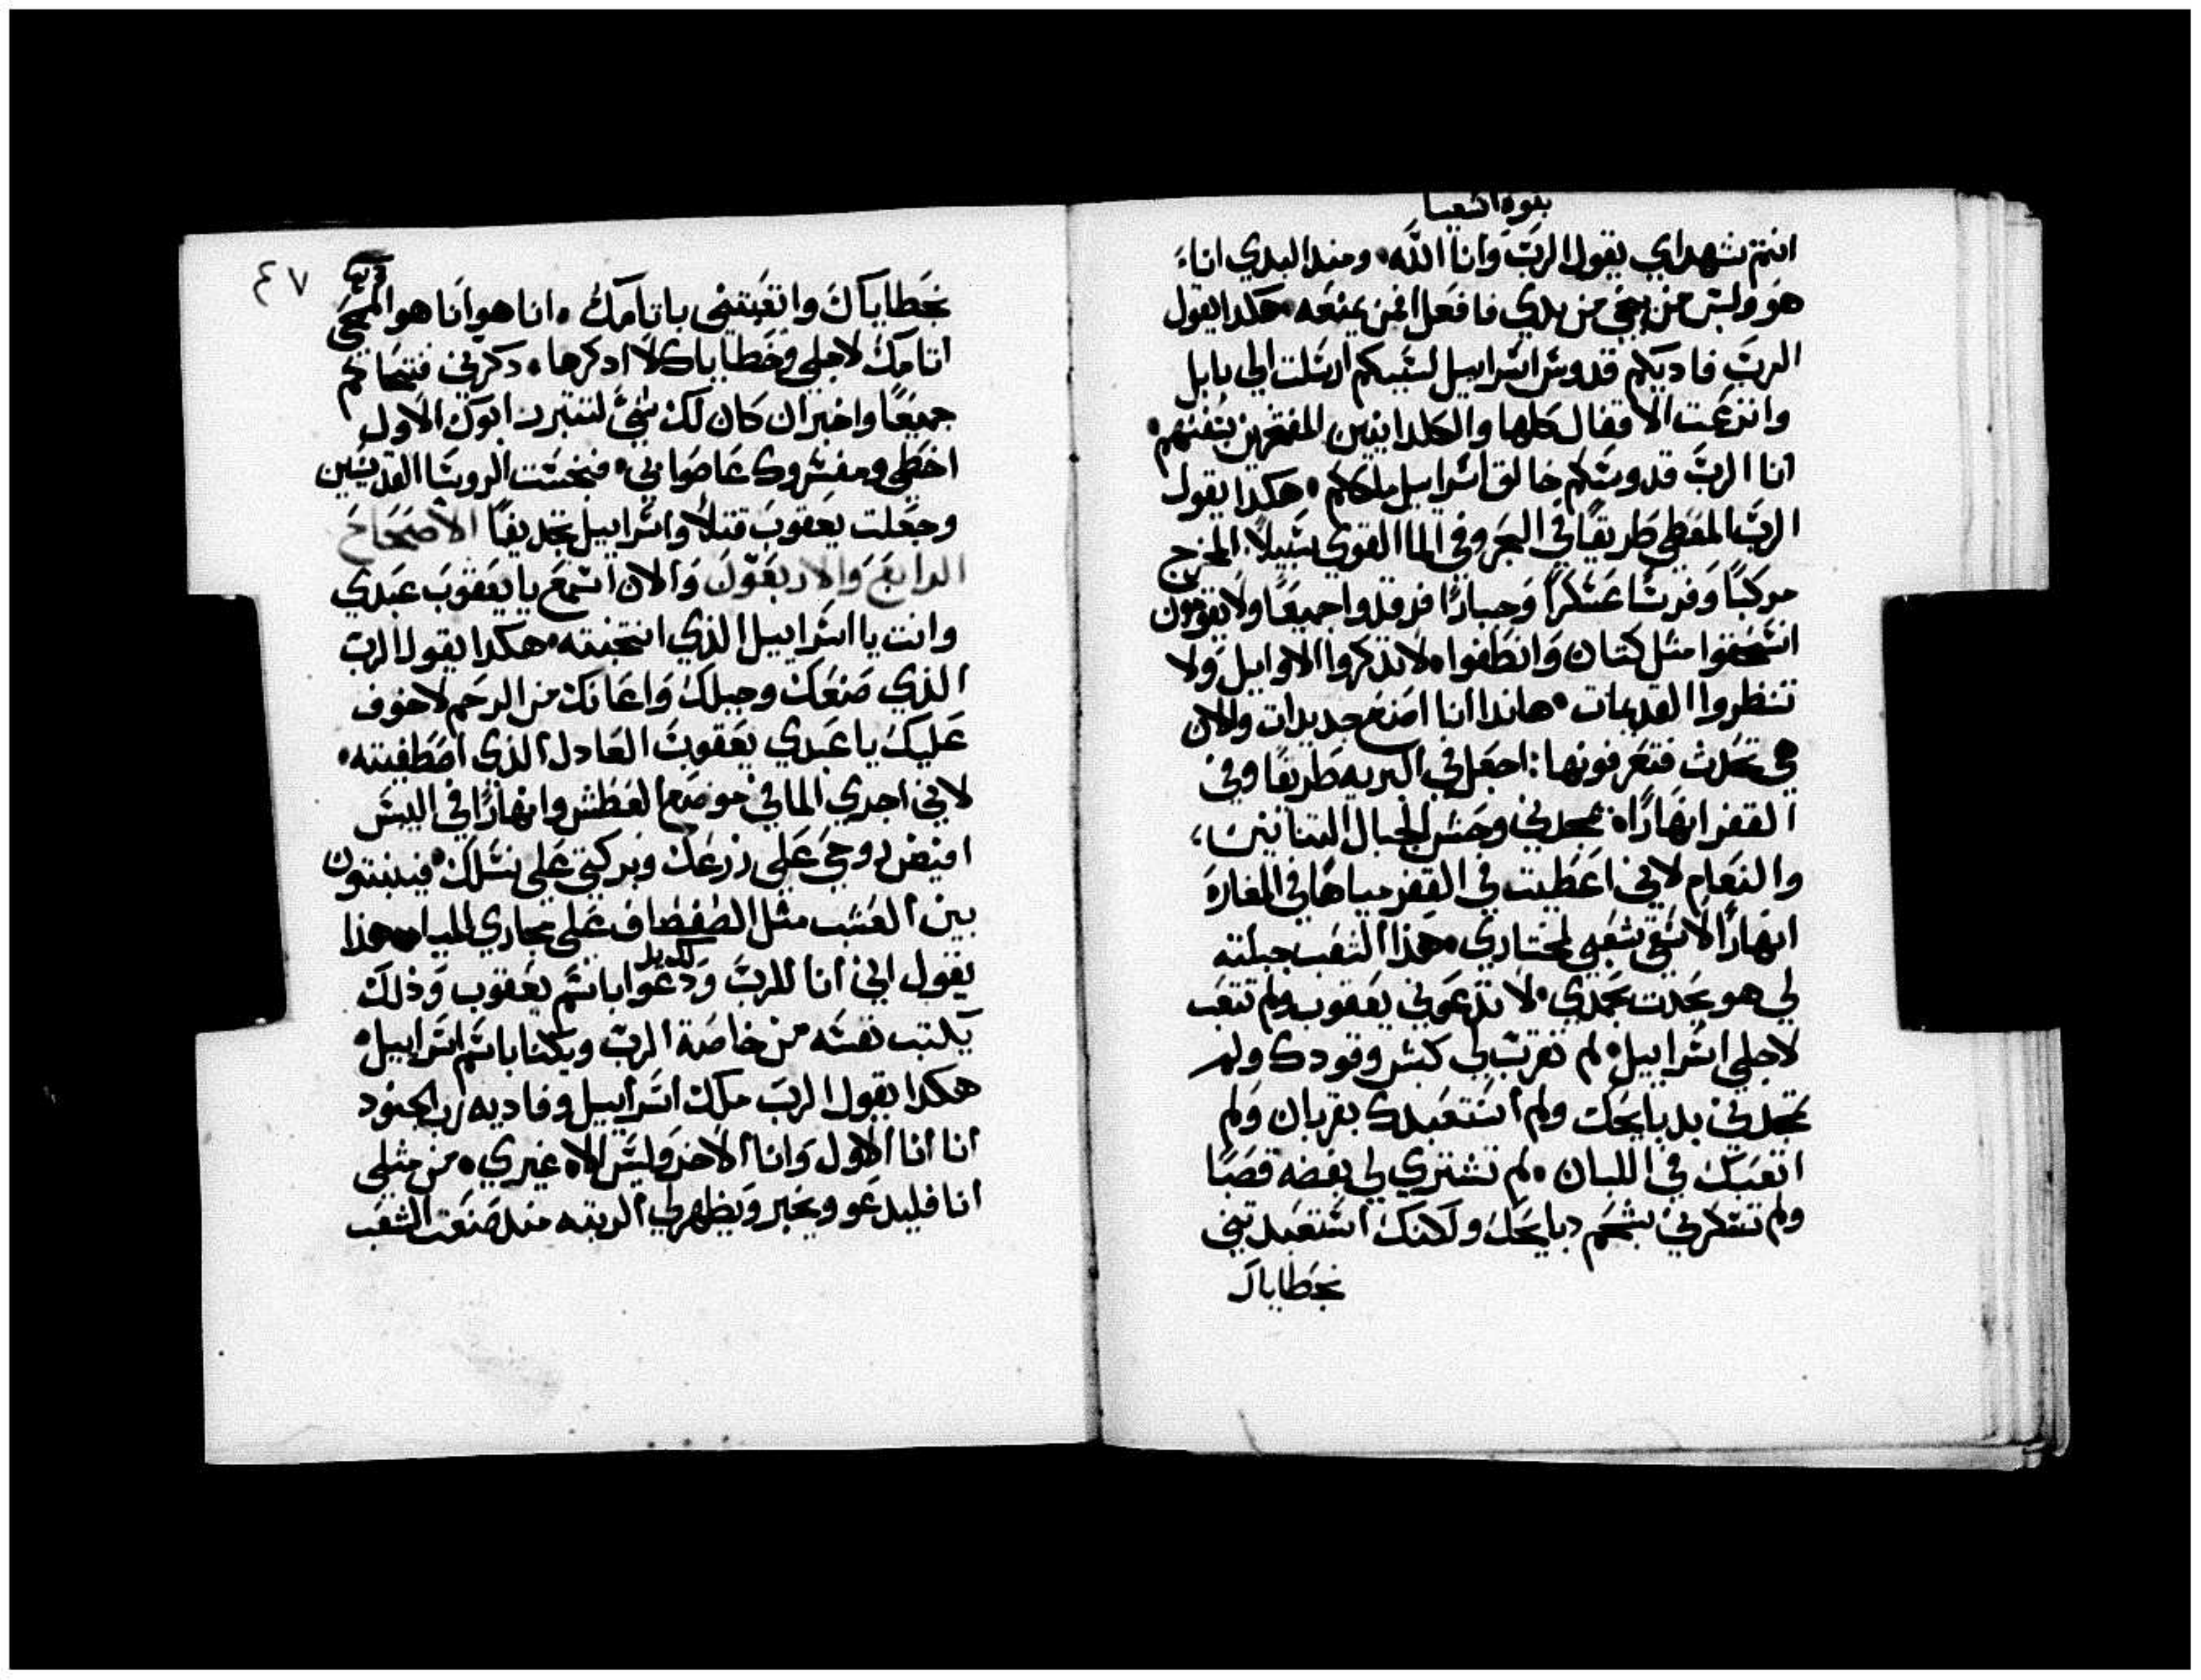 بنوة اشعيا
انتم شهداي يقول الرب وانا الله ومند البدي انا
هو وليس من ينجي من يدي فافعل افمن يمنعه هكدا يقول
الرب فاديكم قدوس اسراييل لسببكم ارسلت الي بابل
وانتزعت الاقفال كلها والكلدانيين المفتخرين بسفنهم
انا الرب قدوسكم خالق اسراييل ملككم هكدا يقول
الرب المعطي طريقا في البحر وفي الما القوي سبيلا المخرج
مركبا وفرسا عسكرا وجبارا فرقدوا جميعا ولا يقومون
انسحقوا مثل كتان وانطفوا لا تدكروا الاوايل ولا
تنظروا القديمات هاندا انا اصنع جديدات والان
هي تحدث فتعرفونها اجعل في البريه طريقا وفي
القفر انهارا تمجدني وحش الجبال التنانين
والنعام لاني اعطيت في القفر مياها في المغارة
انهارا لاسقي شعبي لمختاري هذا الشعب جبلته
لي هو يحدث بمجدي لا تدعوني يعقوب ولم تتعب
لاجلي اسراييل لم تقرب لي كبش وقودك ولم
تمجدني بدبايحك ولم استعبدك بقربان ولم
اتعبك في اللبان ولم تشتري لي بفضه قصبا
ولم تسكرني بشحم دبايحك ولكنك استعبدتني
بخطاياك
٤٧
بخطاياك واتعبتني باتامك انا هو انا هو الممحي
اتامك لاجلي وخطاياك لا ادكرها دكرني فنتحاكم
جميعا واخبر ان كان لك شي لتتبرر ابوك الاول
اخطي ومفسروك عاصوا بي فنجست الروسا القديسين
وجعلت يعقوب قتلا واسراييل تجديفا الاصحاح
الرابع والاربعون والان اسمع يا يعقوب عبدي
وانت يا اسراييل الذي انتخبته هكدا يقول الرب
الذي صنعك وجبلك واعانك من الرحم لا خوف
عليك يا عبدي يعقوب العادل الذي اصطفيته
لاني اجري الما في موضع العطش وانهارا في اليبس
افيض روحي علي زرعك وبركتي علي نسلك فينبتون
بين العشب مثل الصفصاف علي مجاري المياه هذا
يقول اني انا للرب ودعوا باسم يعقوب وذلك
يكتب نفسه من خاصة الرب ويكنا باسم اسراييل
هكدا يقول الرب ملك اسراييل وفاديه رب الجنود
انا انا الاول وانا الاخر وليس الاه غيري من مثلي
انا فليدعو ويخبر ويظهر لي الرتبه مند صنعت الشعب